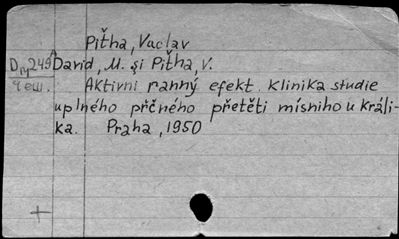 Piťha, Vaclav
D 249 David, M. şi Piťha, V.
Aktivni ranný efekt. klinika studie
uplného přčného přetěti mísniho u králi-
ka. Praha, 1950
+